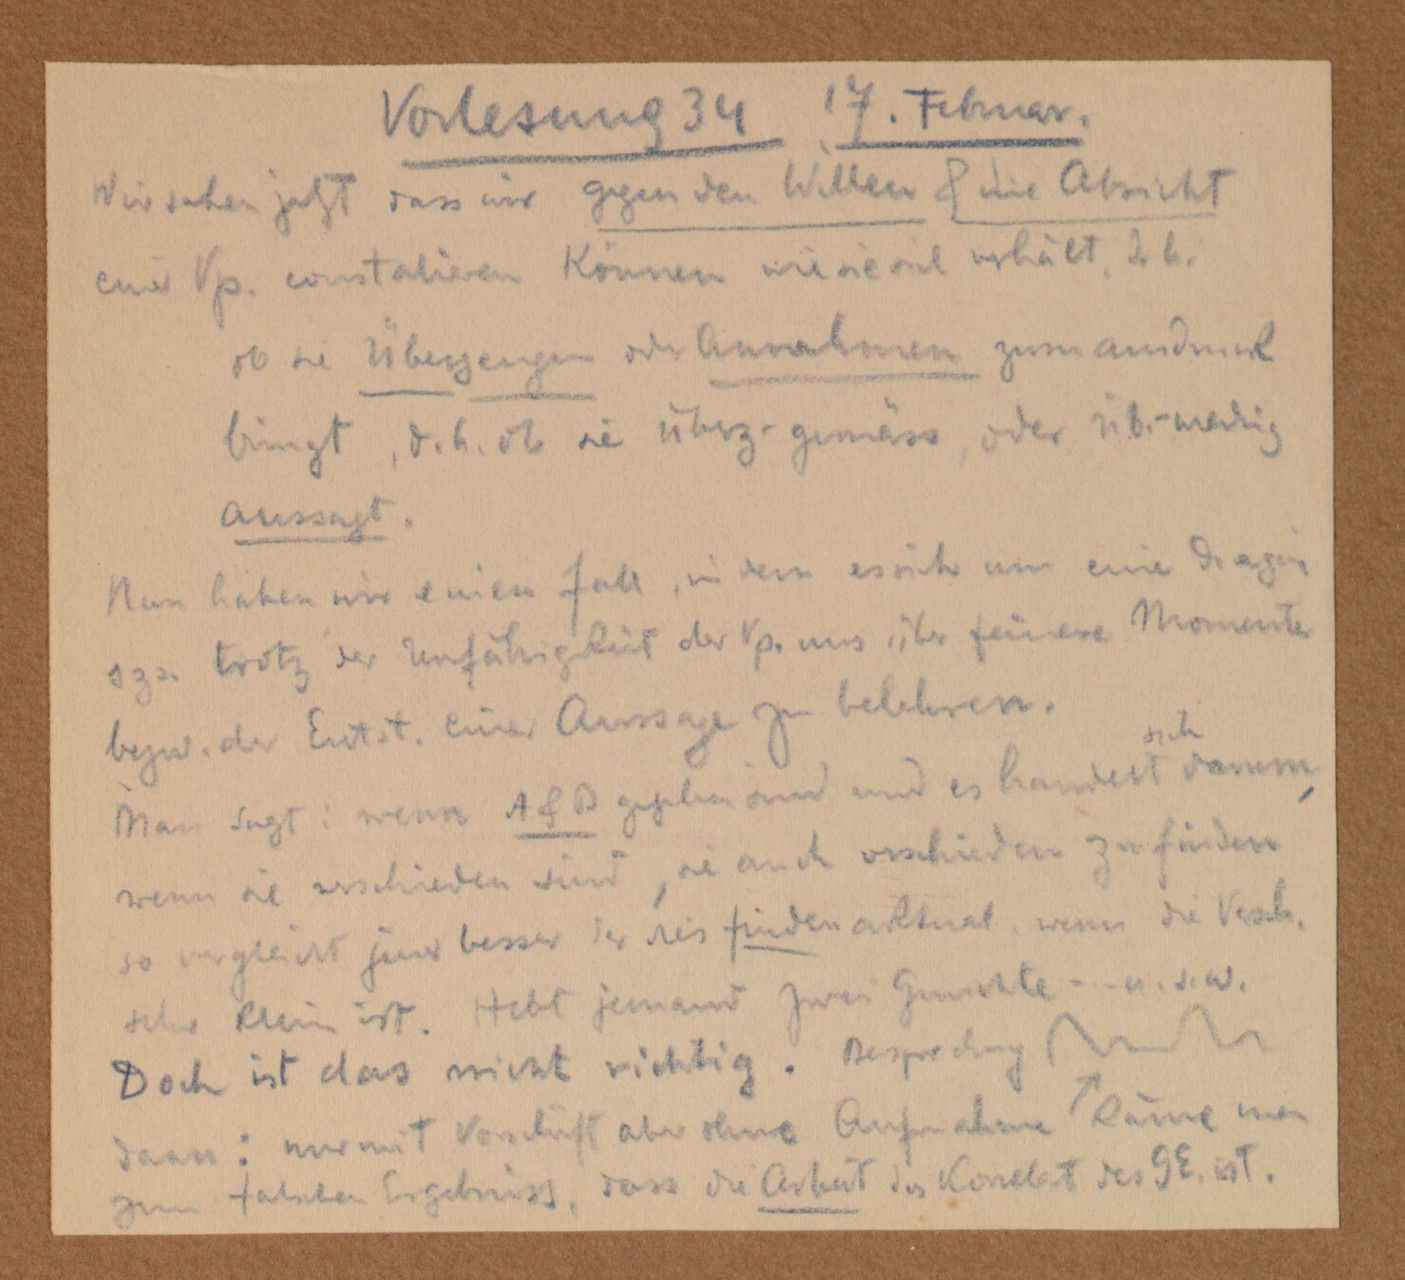 Vorlesung 34 17. Februar.
Wir sahen jetzt dass wir gegen den Willen & die Absicht
einer Vp. constatieren können wie sie sich verhält, d. h.
ob sie Überzeugungen oder Annahmen zum ausdruck
bringt, d. h. ob sie überz-gemäss, oder üb.-widrig
aussagt.
Nun haben wir einen Fall, in dem es sich um eine
trotz der Unfähigkeit der Vp. uns über feinere Momente
bezw. der Entst. einer Aussage zu belehren.
Man sagt: wenn A & B gegeben sind und es handelt sich darum,
wenn sie verschieden sind, sie auch verschieden zu finden
so vergleicht jener besser der dies finden wenn die Versch.
sehr klein ist. Hebt jemand zwei Gewichte --- u.s.w.
Doch ist das nicht richtig. Besprechung
dann: nur mit Vorschrift aber ohne Aufnahme käme man
zum falschen Ergebniss, dass die Arbeit das Korrelat des GE. ist.